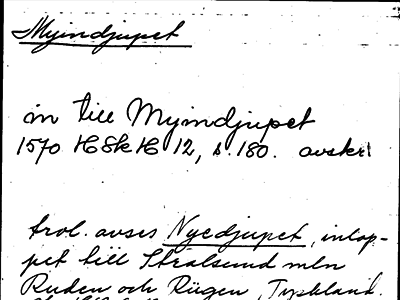 Myindjupet
in till Myindjupet
1570 HSkH 12, s. 180. avskr
trol. avses Nyedjupet, inlop-
pet till Stralsund mln
Ruden och Rügen, Tyskland.